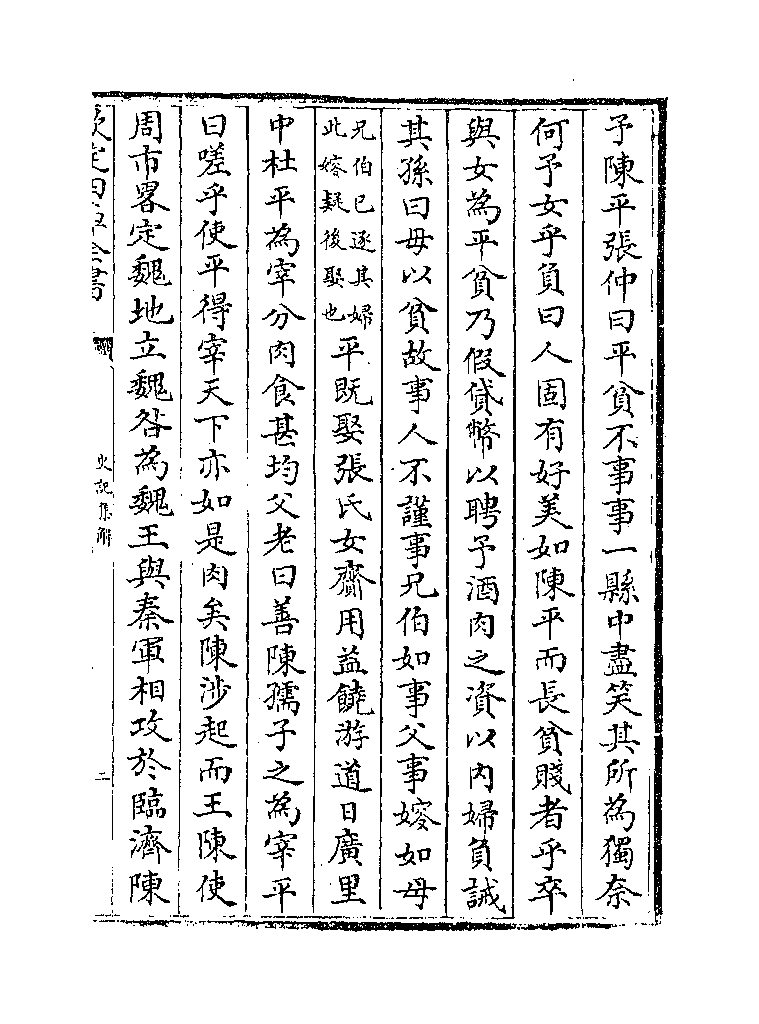 予陳平張仲曰平貧不事事一縣中盡笑其所為獨奈
何予女乎負曰人固有好美如陳平而長貧賤者乎卒
與女為平貧乃假貸幣以聘予酒肉之資以內婦負誡
其孫曰毋以貧故事人不謹事兄伯如事父事嫂如母
兄伯已逐其婦
此嫂疑後娶也
平既娶張氏女齎用益饒游道日廣里
中杜平為宰分肉食甚均父老曰善陳孺子之為宰平
曰嗟乎使平得宰天下亦如是肉矣陳涉起而王陳使
周市畧定魏地立魏咎為魏王與秦軍相攻於臨濟陳
欽定四庫全書
史記集解
二